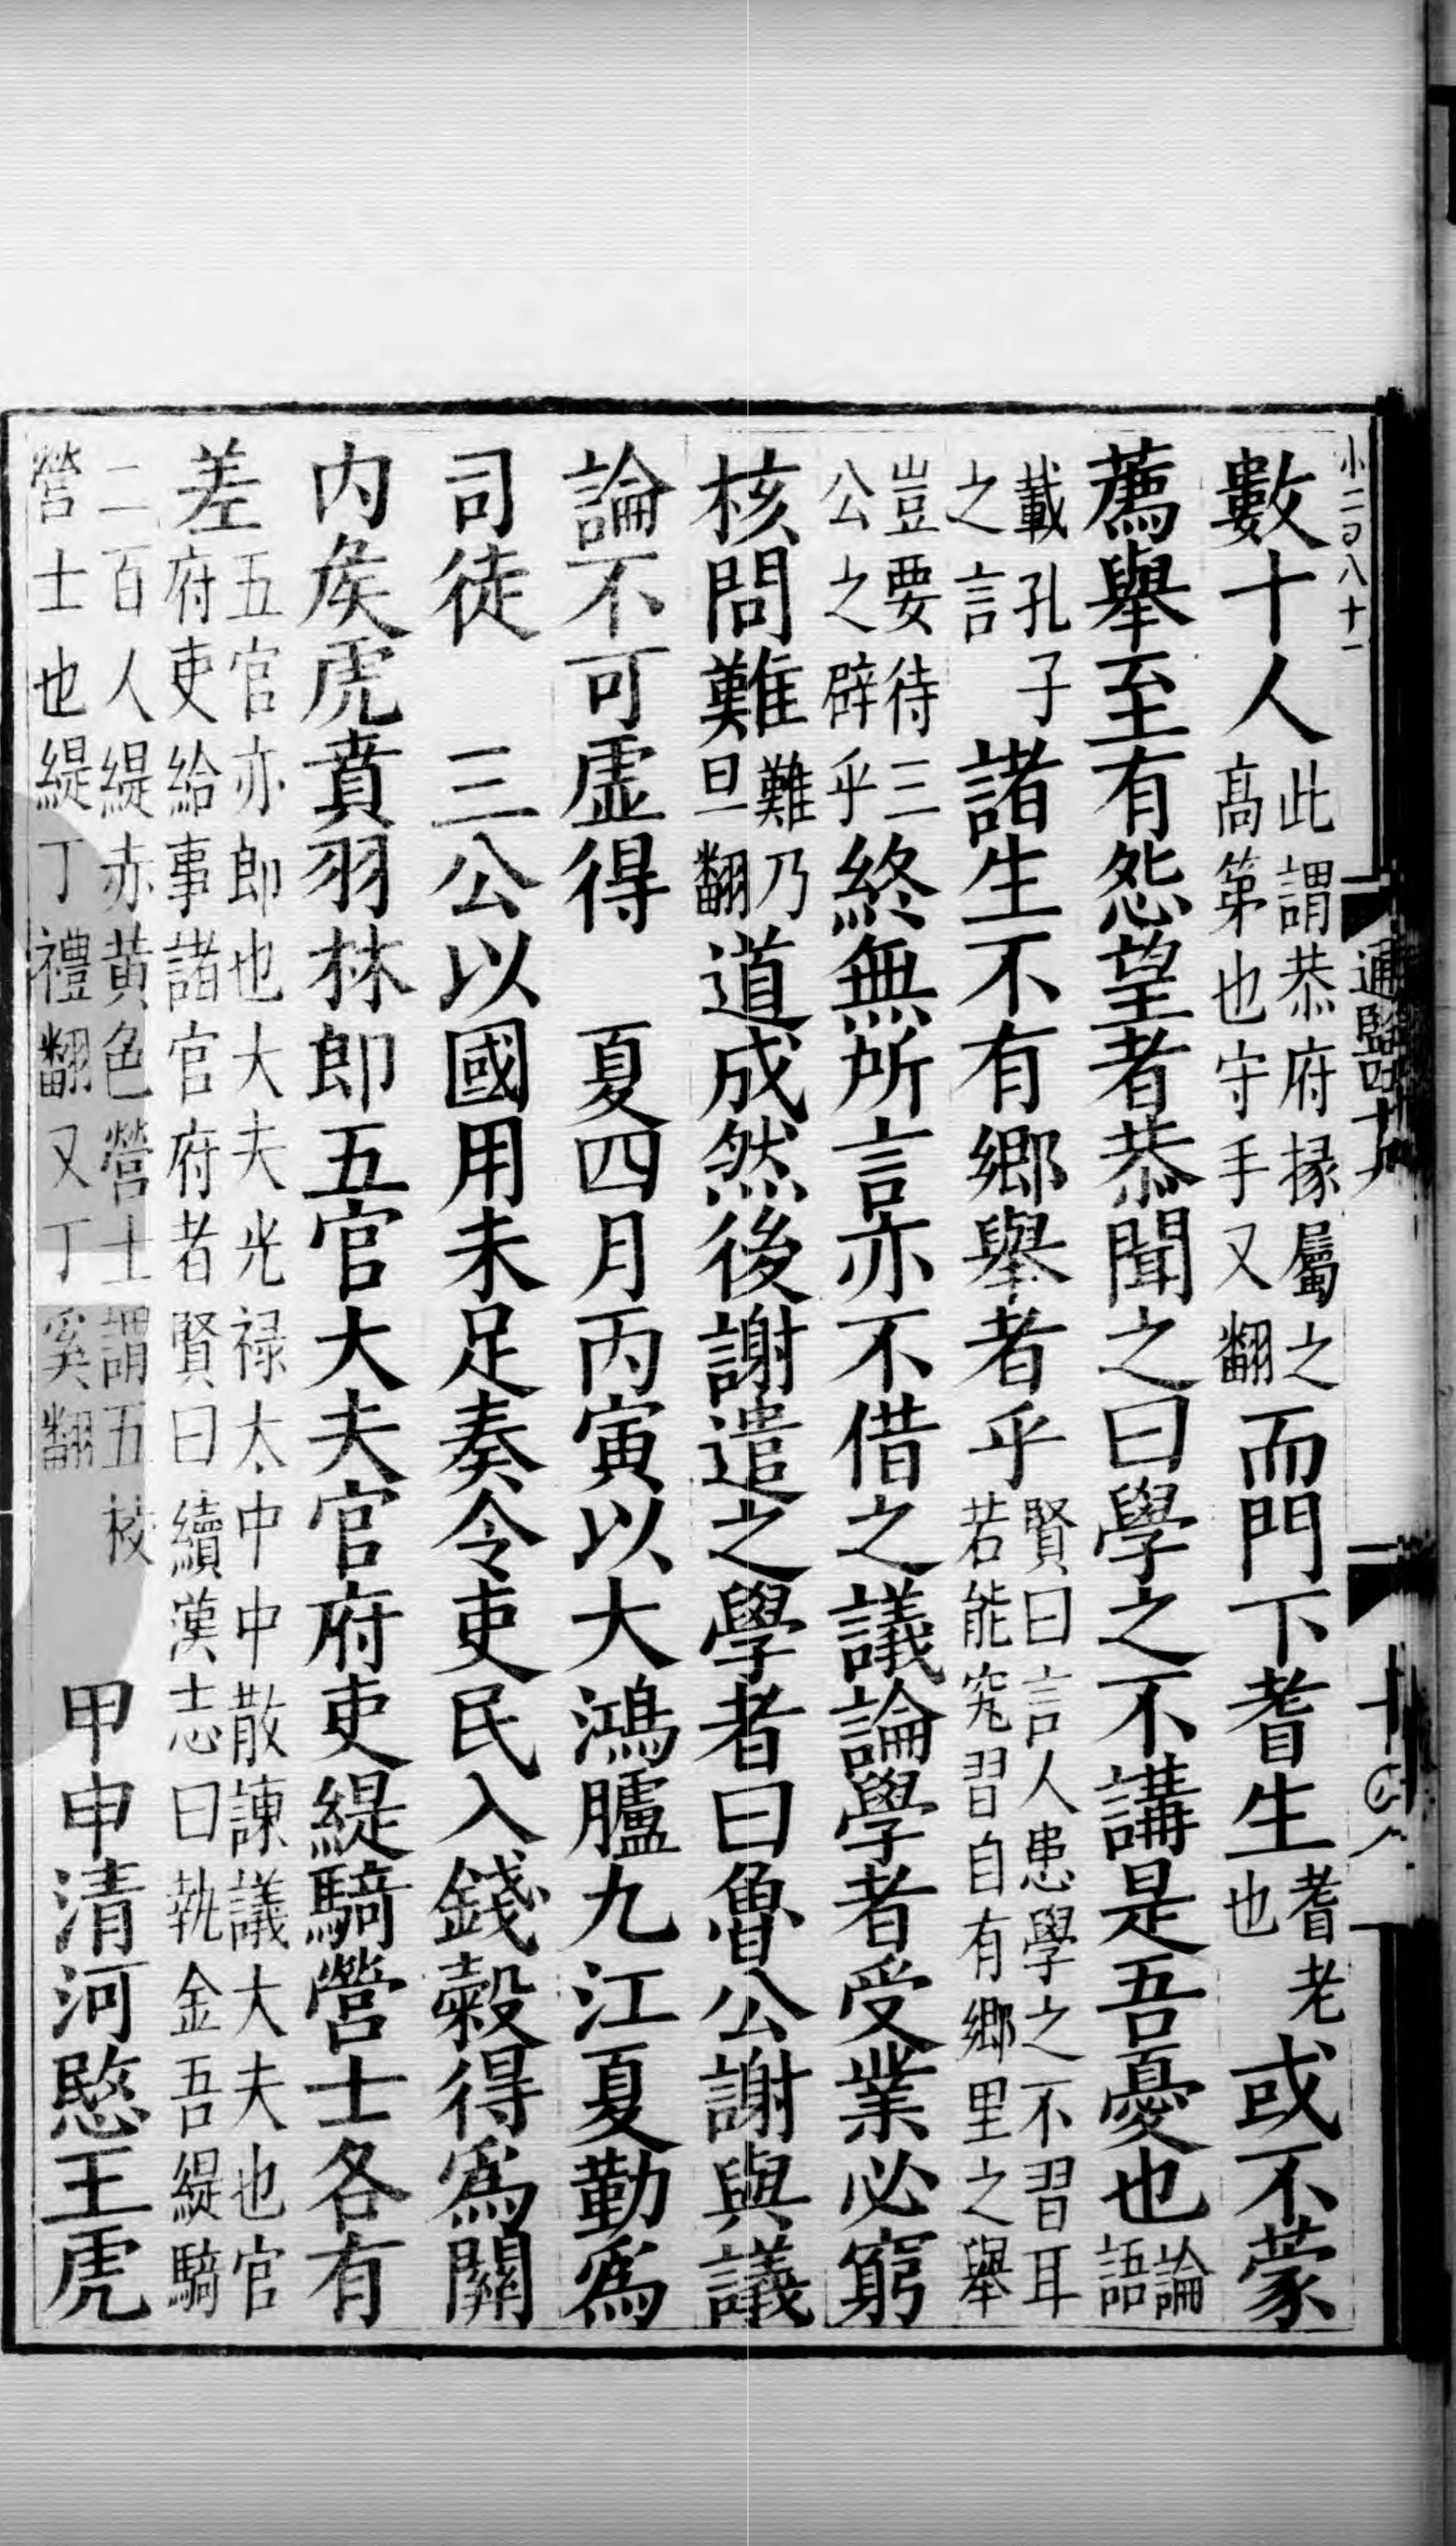 小二百八十一
數十人此謂恭府掾屬之高第也守手又翻而門下耆生耆老也或不蒙
薦舉至有怨望者恭聞之曰學之不講是吾憂也論語
載孔子之言諸生不有鄉舉者乎賢曰言人患學之不習耳若能究習自有鄉里之舉
豈要待三公之辟乎終無所言亦不借之議論學者受業必窮
核問難難乃旦翻道成然後謝遣之學者曰魯公謝與議
論不可虛得　夏四月丙寅以大鴻臚九江夏勤爲
司徒　三公以國用未足奏令吏民入錢穀得爲關
内矦虎賁羽林郎五官大夫官府吏緹騎營士各有
差五官亦郎也大夫光禄太中中散諫議大夫也官府吏給事諸官府者賢曰續漢志曰執金吾緹騎
二百人緹赤黄色營士謂五校營士也緹丁禮翻又丁奚翻　甲申清河愍王虎